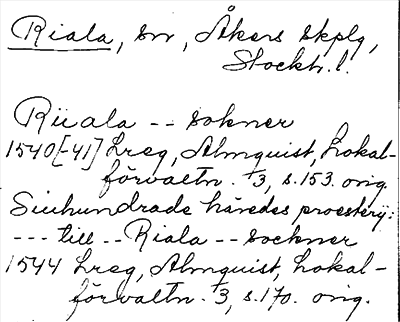 Riala, sn, Åkers skplg,
Stockh. l.
Riiala -- sokner
1540[-41] Lreg, Almquist, Lokal-
förvaltn. 1/3, s. 153. orig.
Siuhundrade häredes prosterij:
--- till -- Riala -- sockner
1544 Lreg, Almquist, Lokal-
förvaltn. 1/3, s. 170. orig.